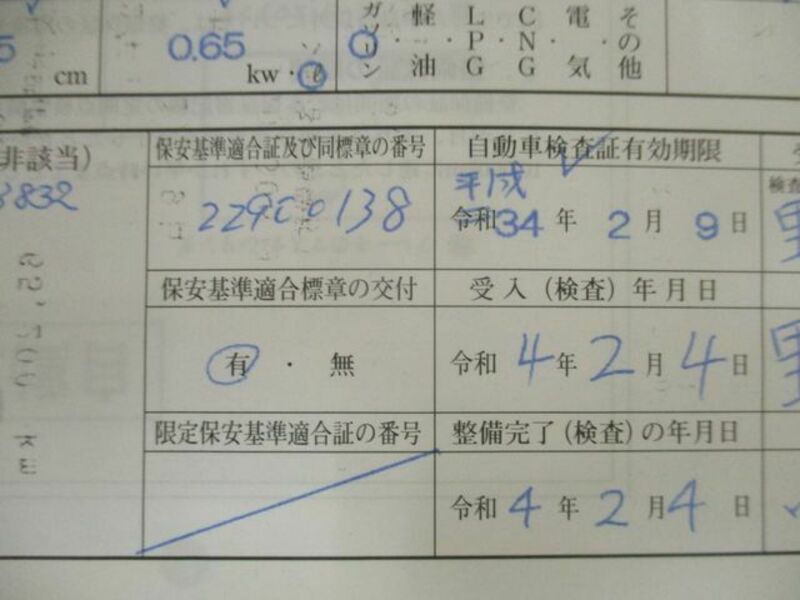 5 cm
0.65 kw・ℓ
ガソリン・軽油・LPG・CNG・電気・その他
非該当)
保安基準適合証及び同標章の番号
自動車検査証有効期限
検査
8832
229C0138
平成
令和34年 2月 9日
保安基準適合標章の交付
受入(検査)年月日
有・無
令和 4年 2月 4日
限定保安基準適合証の番号
整備完了(検査)の年月日
令和 4年 2月 4日